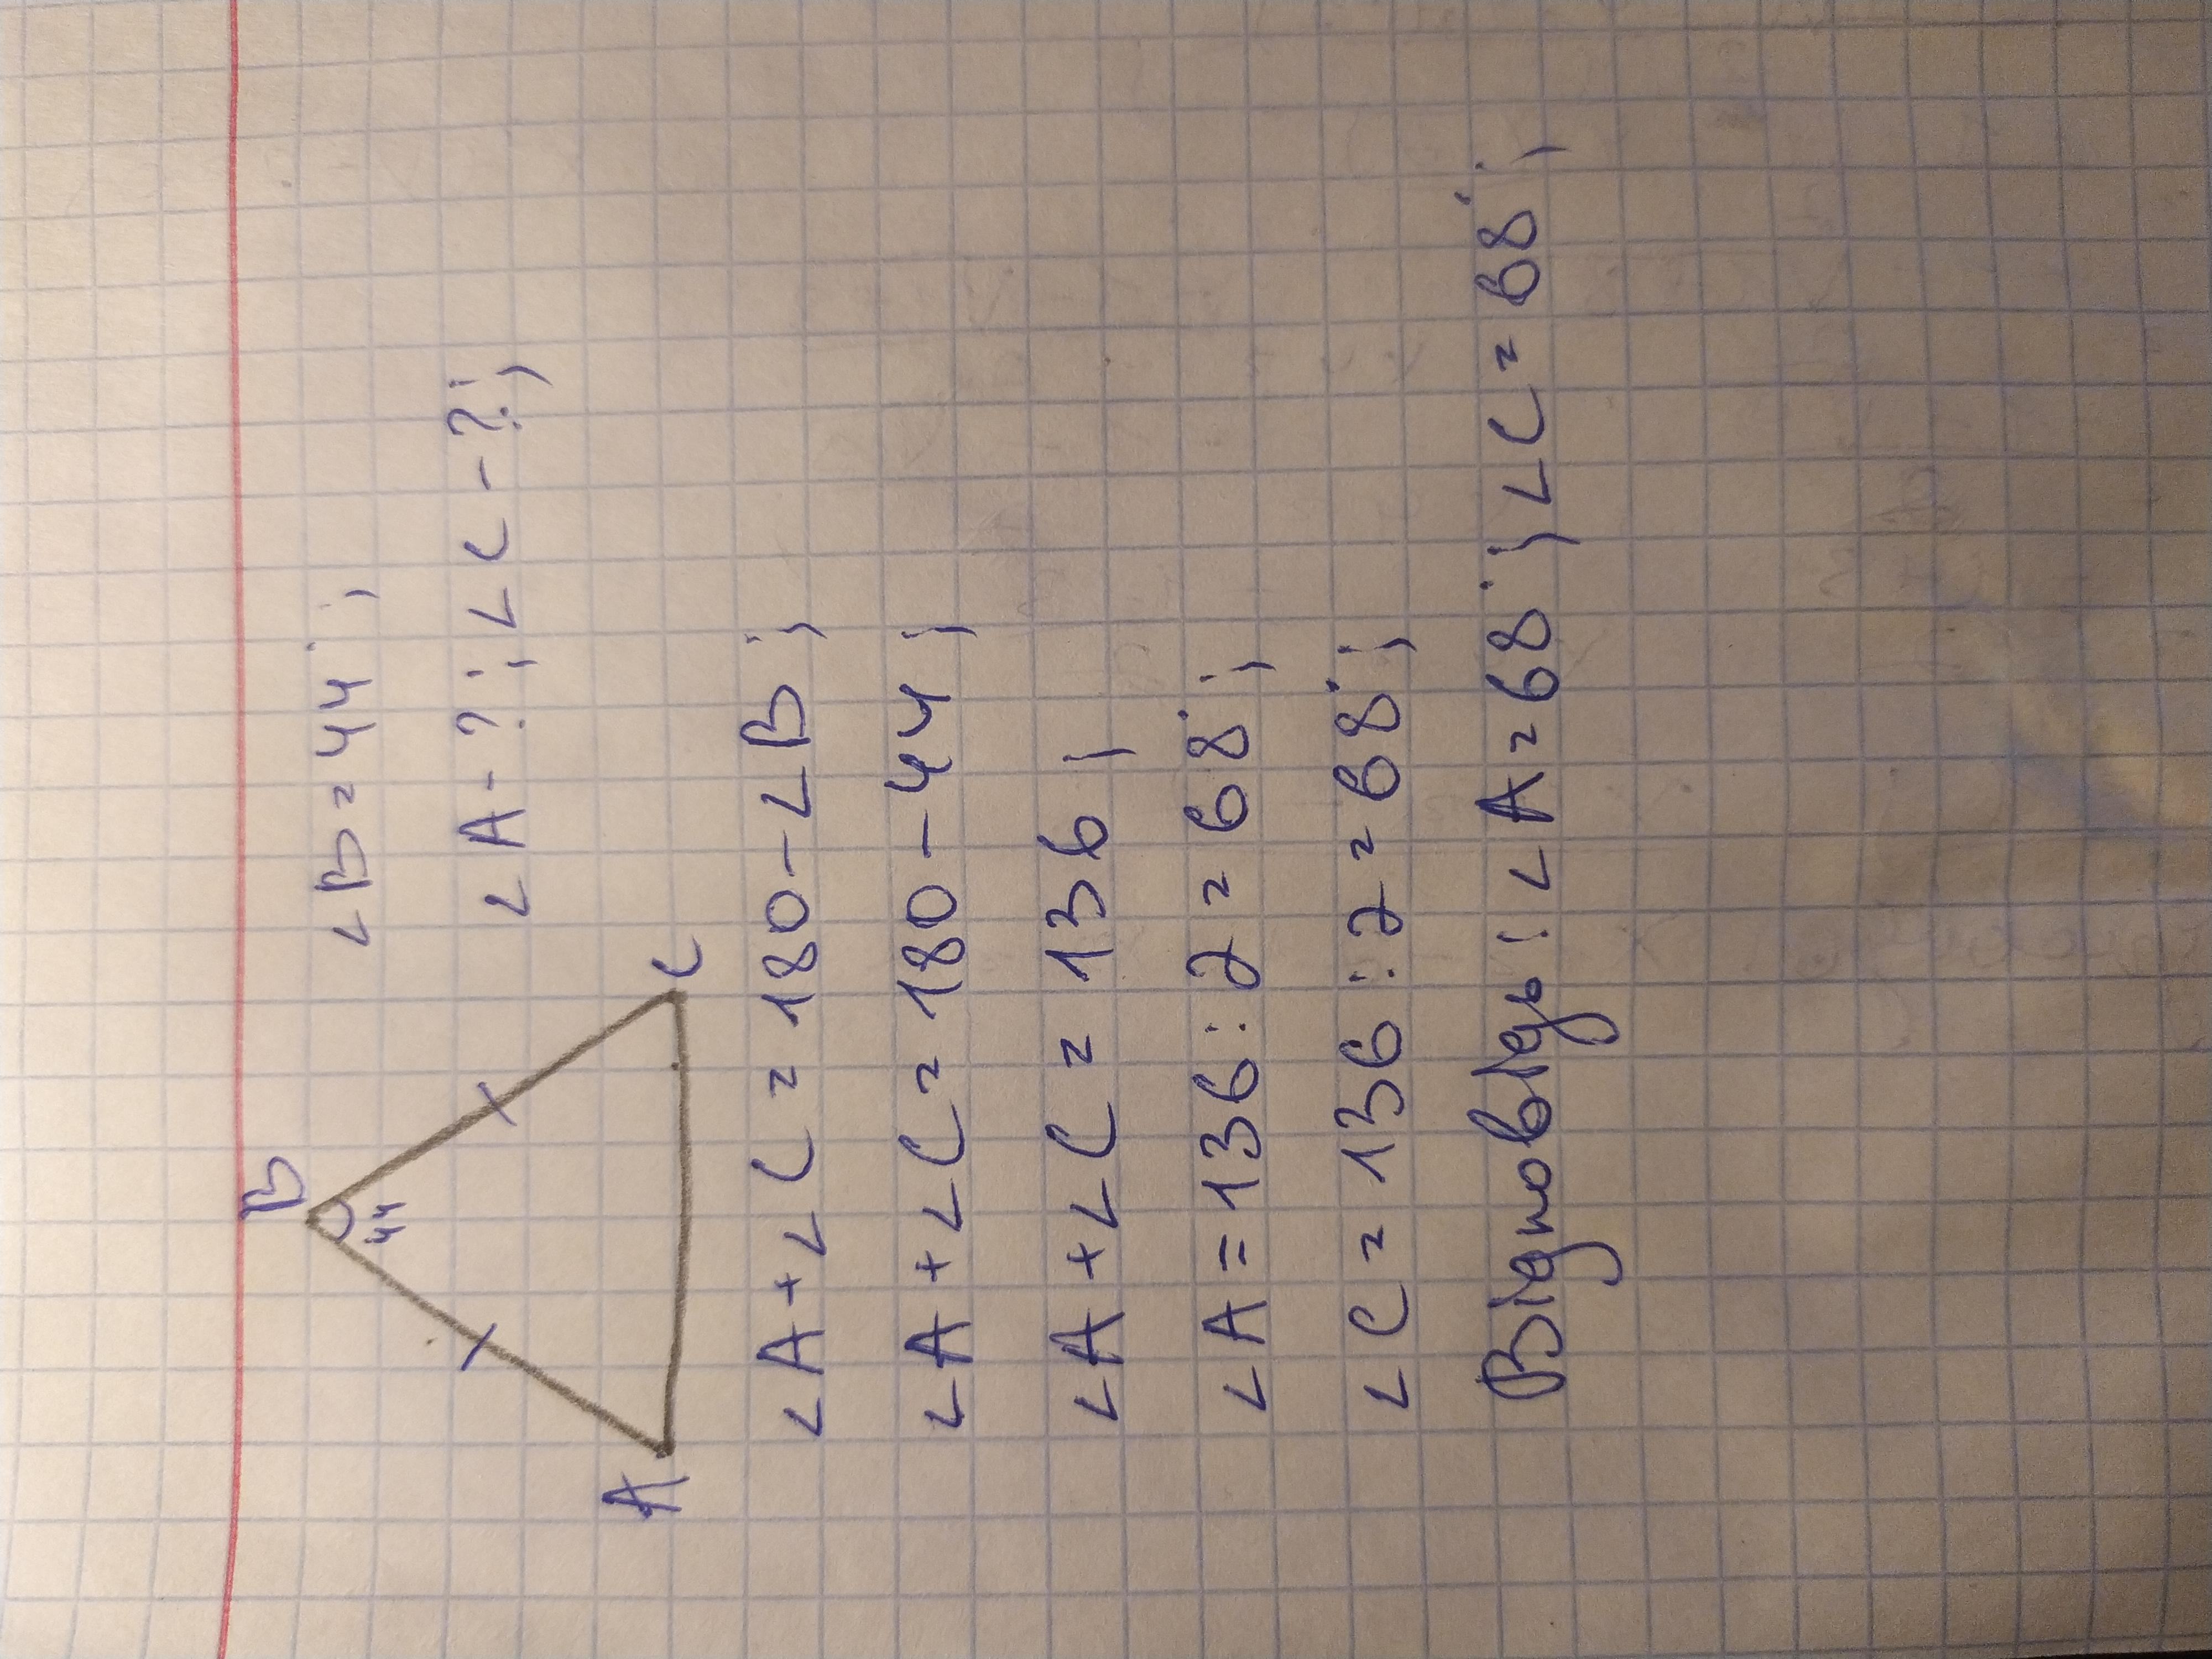 B
44
A
C
∠B=44°;
∠A-?; ∠C-?;
∠A+∠C=180-∠B;
∠A+∠C=180-44;
∠A+∠C=136;
∠A=136:2=68°;
∠C=136:2=68°;
Відповідь: ∠A=68°; ∠C=68°;